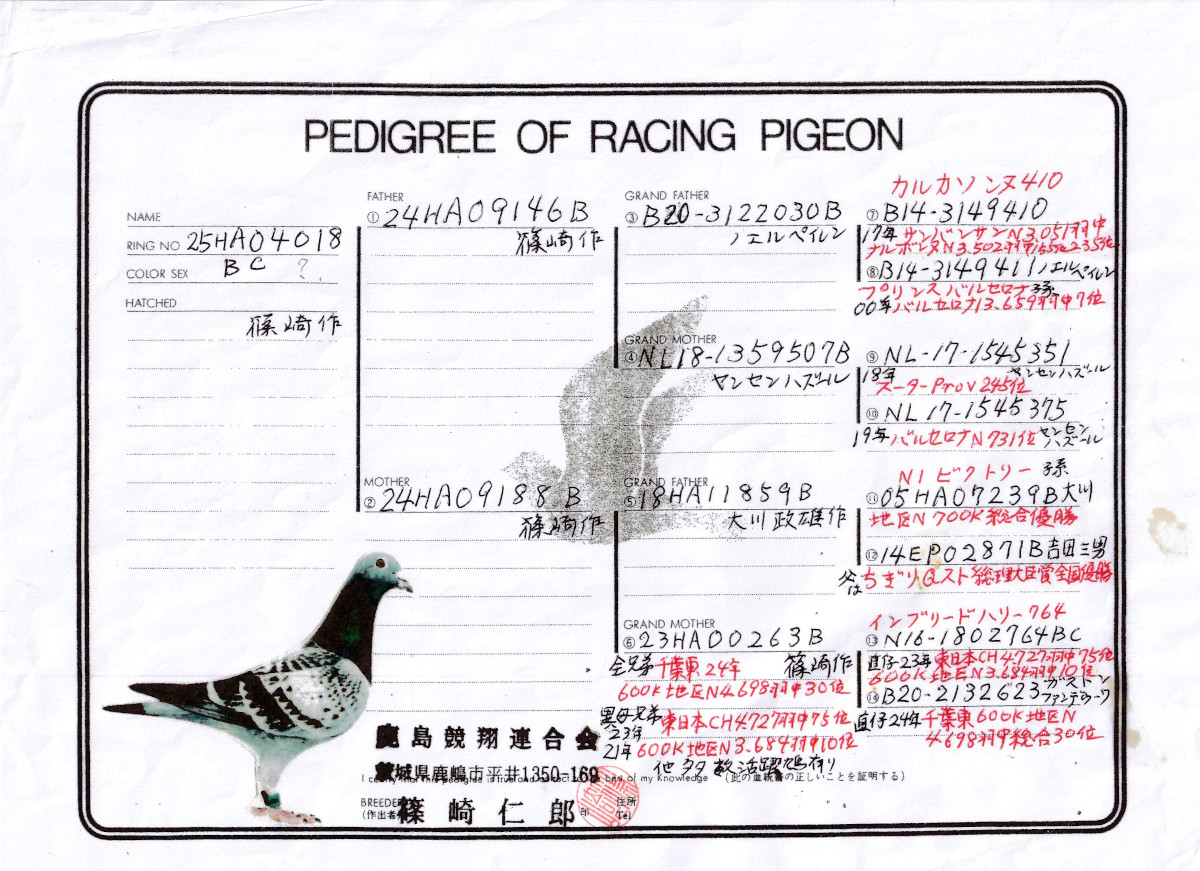 PEDIGREE OF RACING PIGEON
NAME
RING NO 25HA04018
COLOR SEX BC ?
HATCHED
篠崎作
FATHER
① 24HA09146B
篠崎作
MOTHER
② 24HA09188B
篠崎作
GRAND FATHER
③ B20-3122030B
ノエルペイレン
GRAND MOTHER
④ NL18-1359507B
ヤンセンハズール
GRAND FATHER
⑤ 18HA11859B
大川政雄作
GRAND MOTHER
⑥ 23HA00263B
篠崎作
全兄弟千葉東24年
600K地区N4698羽中30位
異母兄弟東日本CH4727羽中75位
23年
21年600K地区N3.684羽中10位
他多数活躍鳩有り
カルカソンヌ410
⑦ B14-3149410
17年サンバンサンN3.051羽中
ナルボンヌN3.502羽中155位235位
⑧ B14-3149411ノエルペイレン
プリンスバルセロナ孫
00年バルセロナ13.659羽中7位
⑨ NL-17-1545351
18年 ヤンセンハズール
スーターProv245位
⑩ NL17-1545375
19年バルセロナN731位ヤンセンハズール
N1ビクトリー孫
⑪ 05HA07239B大川
地区N700K総合優勝
⑫ 14EP02871B吉田三男
父はちぎりQスト総理大臣賞全国優勝
インブリードハリー764
⑬ N16-1802764BC
直仔23年東日本CH4727羽中75位
600K地区N3.684羽中10位
⑭ B20-2132623
直仔24年千葉東600K地区N
4698羽中総合30位
鹿島競翔連合会
茨城県鹿嶋市平井1350-169
of my knowledge (此の血統書の正しいことを証明する)
BREEDER
(作出者) 篠崎仁郎 印
住所
Tel